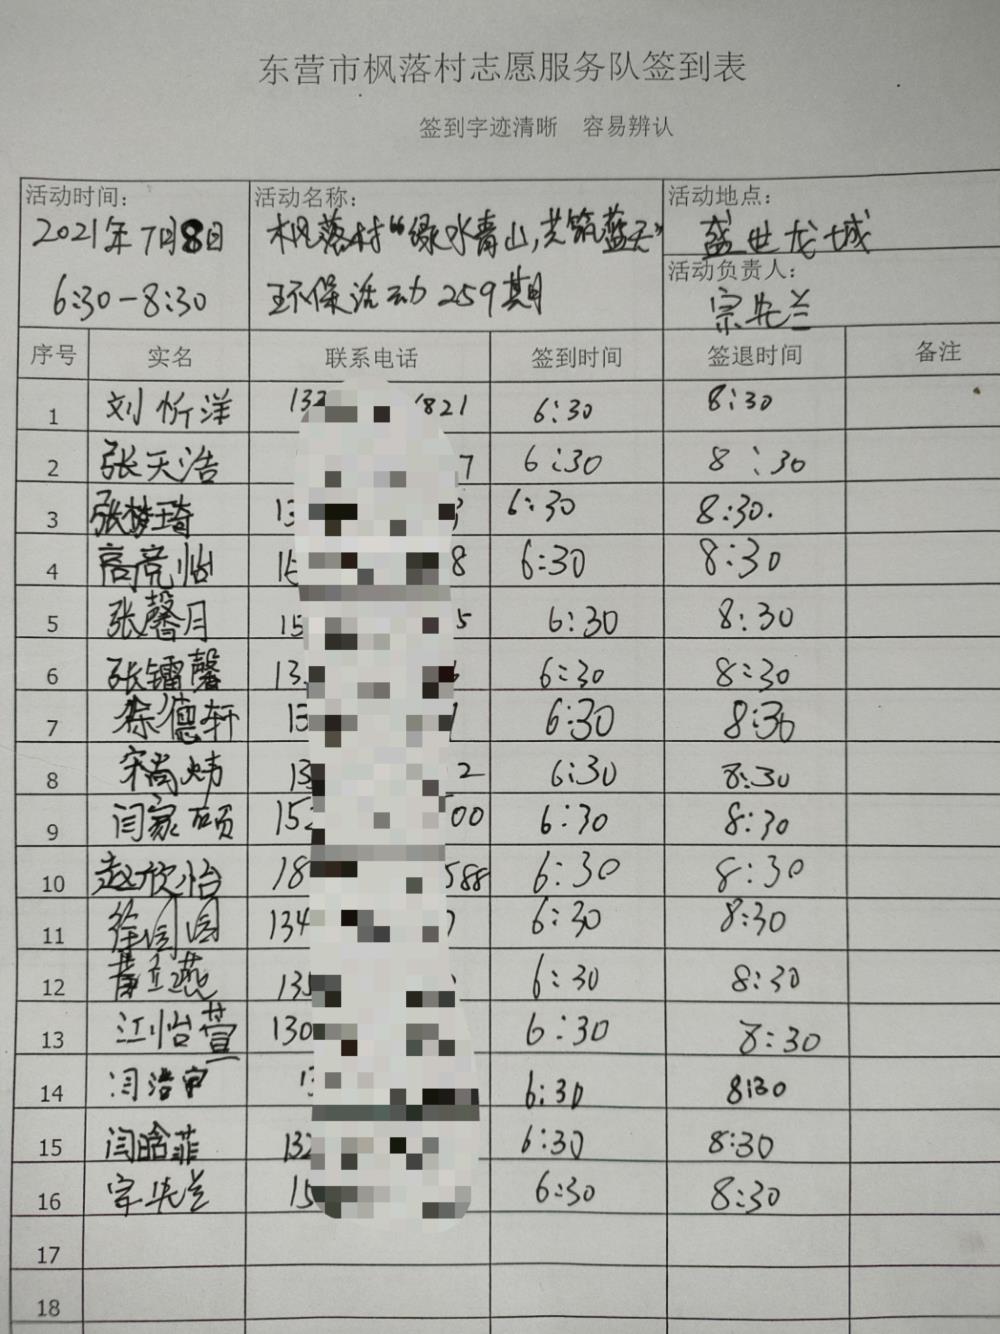 东营市枫落村志愿服务队签到表
签到字迹清晰 容易辨认
活动时间: 活动名称: 活动地点:
2021年7月8日 枫落村“绿水青山,共筑蓝天” 盛世龙城
活动负责人:
6:30-8:30 环保活动259期 宗先兰
序号 实名 联系电话 签到时间 签退时间 备注
1 刘忻洋 132 1821 6:30 8:30
2 张天浩 7 6:30 8:30
3 张梦琦 13 6:30 8:30.
4 高亮怡 8 6:30 8:30
5 张馨月 15 5 6:30 8:30
6 张镭馨 13 6:30 8:30
7 徐德轩 13 6:30 8:30
8 宋尚炜 13 2 6:30 8:30
9 闫家硕 152 00 6:30 8:30
10 赵欣怡 18 588 6:30 8:30
11 徐 134 6:30 8:30
12 燕 135 6:30 8:30
13 江怡萱 130 6:30 8:30
14 闫浩 13 6:30 8:30
15 闫晗菲 132 6:30 8:30
16 宗先兰 15 6:30 8:30
17
18